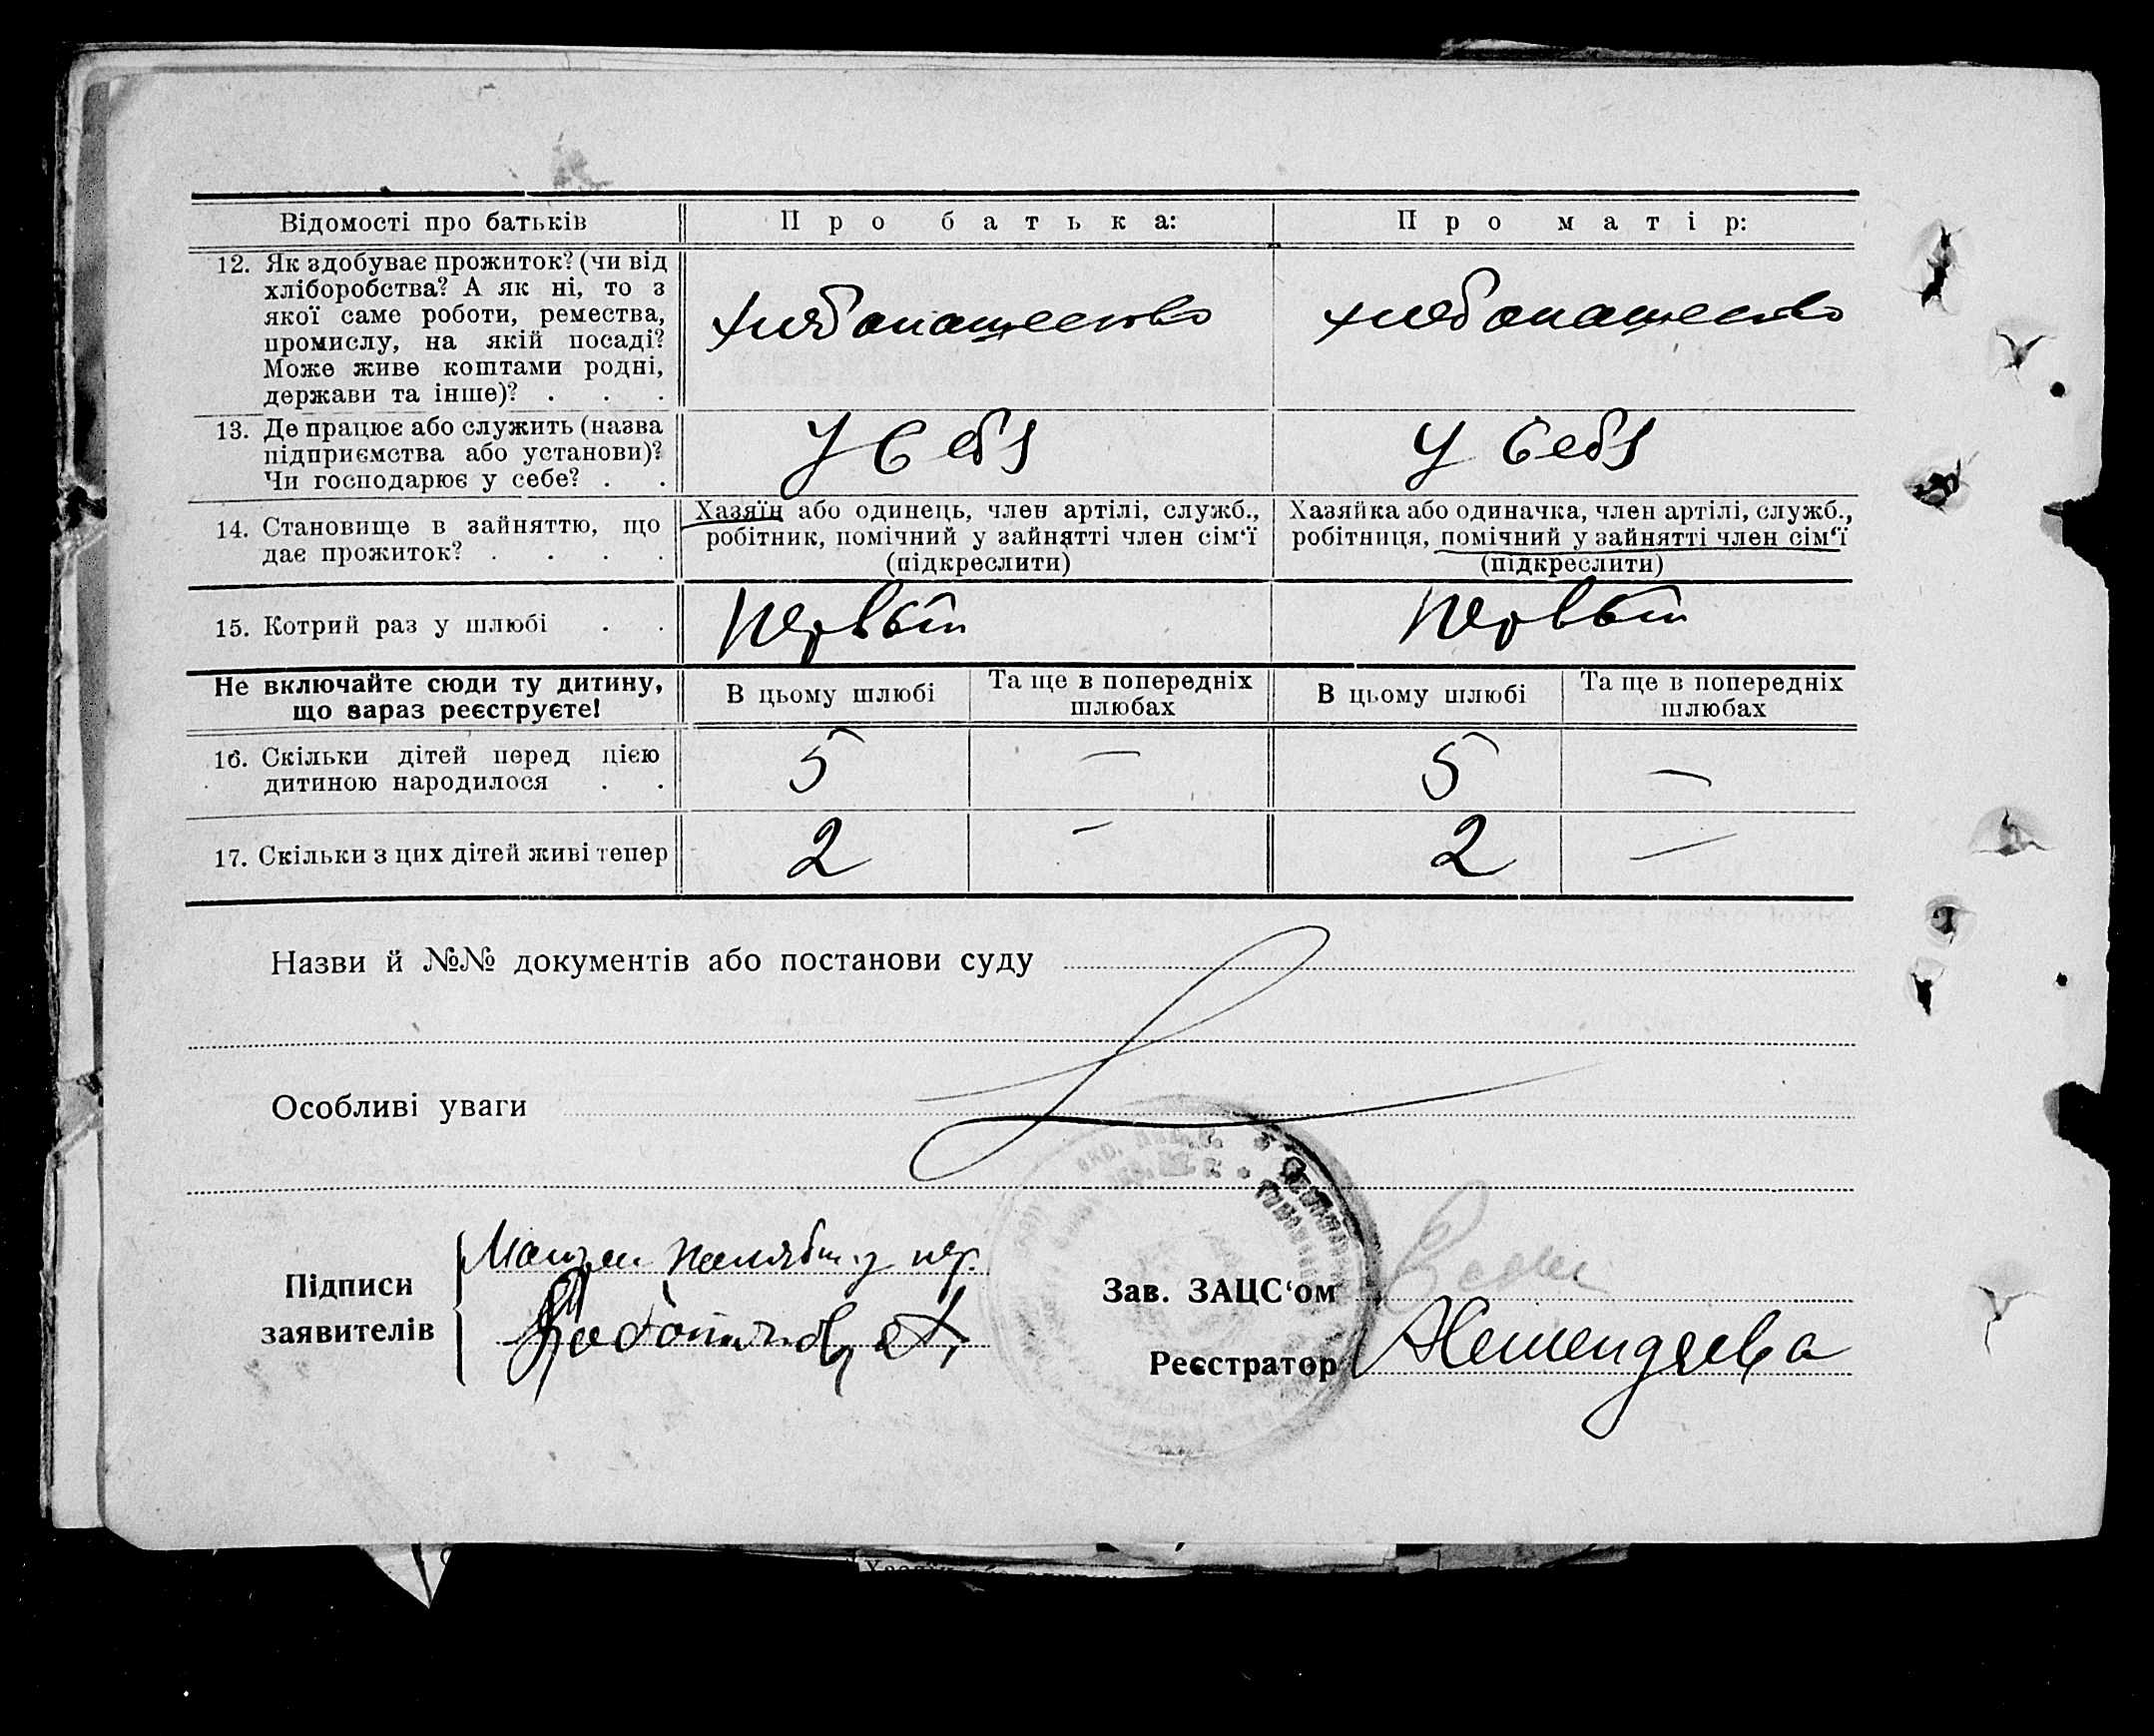 Відомості про батьків Про батька: Про матір:
12. Як здобуває прожиток? (чи від
хліборобства? А як ні, то з
якої саме роботи, ремества,
промислу, на якій посаді?
Може живе коштами родні,
держави та інше)? . . .
хлебопашество хлебопашество
13. Де працює або служить (назва
підприємства або установи)?
Чи господарює у себе? . .
У себя У себя
14. Становище в зайняттю, що
дає прожиток? . . . .
Хазяїн або одинець, член артілі, служб.,
робітник, помічний у зайнятті член сім‘ї
(підкреслити)
Хазяйка або одиначка, член артілі, служб.,
робітниця, помічний у зайнятті член сім‘ї
(підкреслити)
15. Котрий раз у шлюбі . . Первый Первый
Не включайте сюди ту дитину,
що зараз реєструєте!
В цьому шлюбі Та ще в попередніх
шлюбах
В цьому шлюбі Та ще в попередніх
шлюбах
16. Скільки дітей перед цією
дитиною народилося . .
5 — 5 —
17. Скільки з цих дітей живі тепер 2 — 2 —
Назви й №№ документів або постанови суду
Особливі уваги
Підписи
заявителів
Зав. ЗАЦС‘ом
Реєстратор